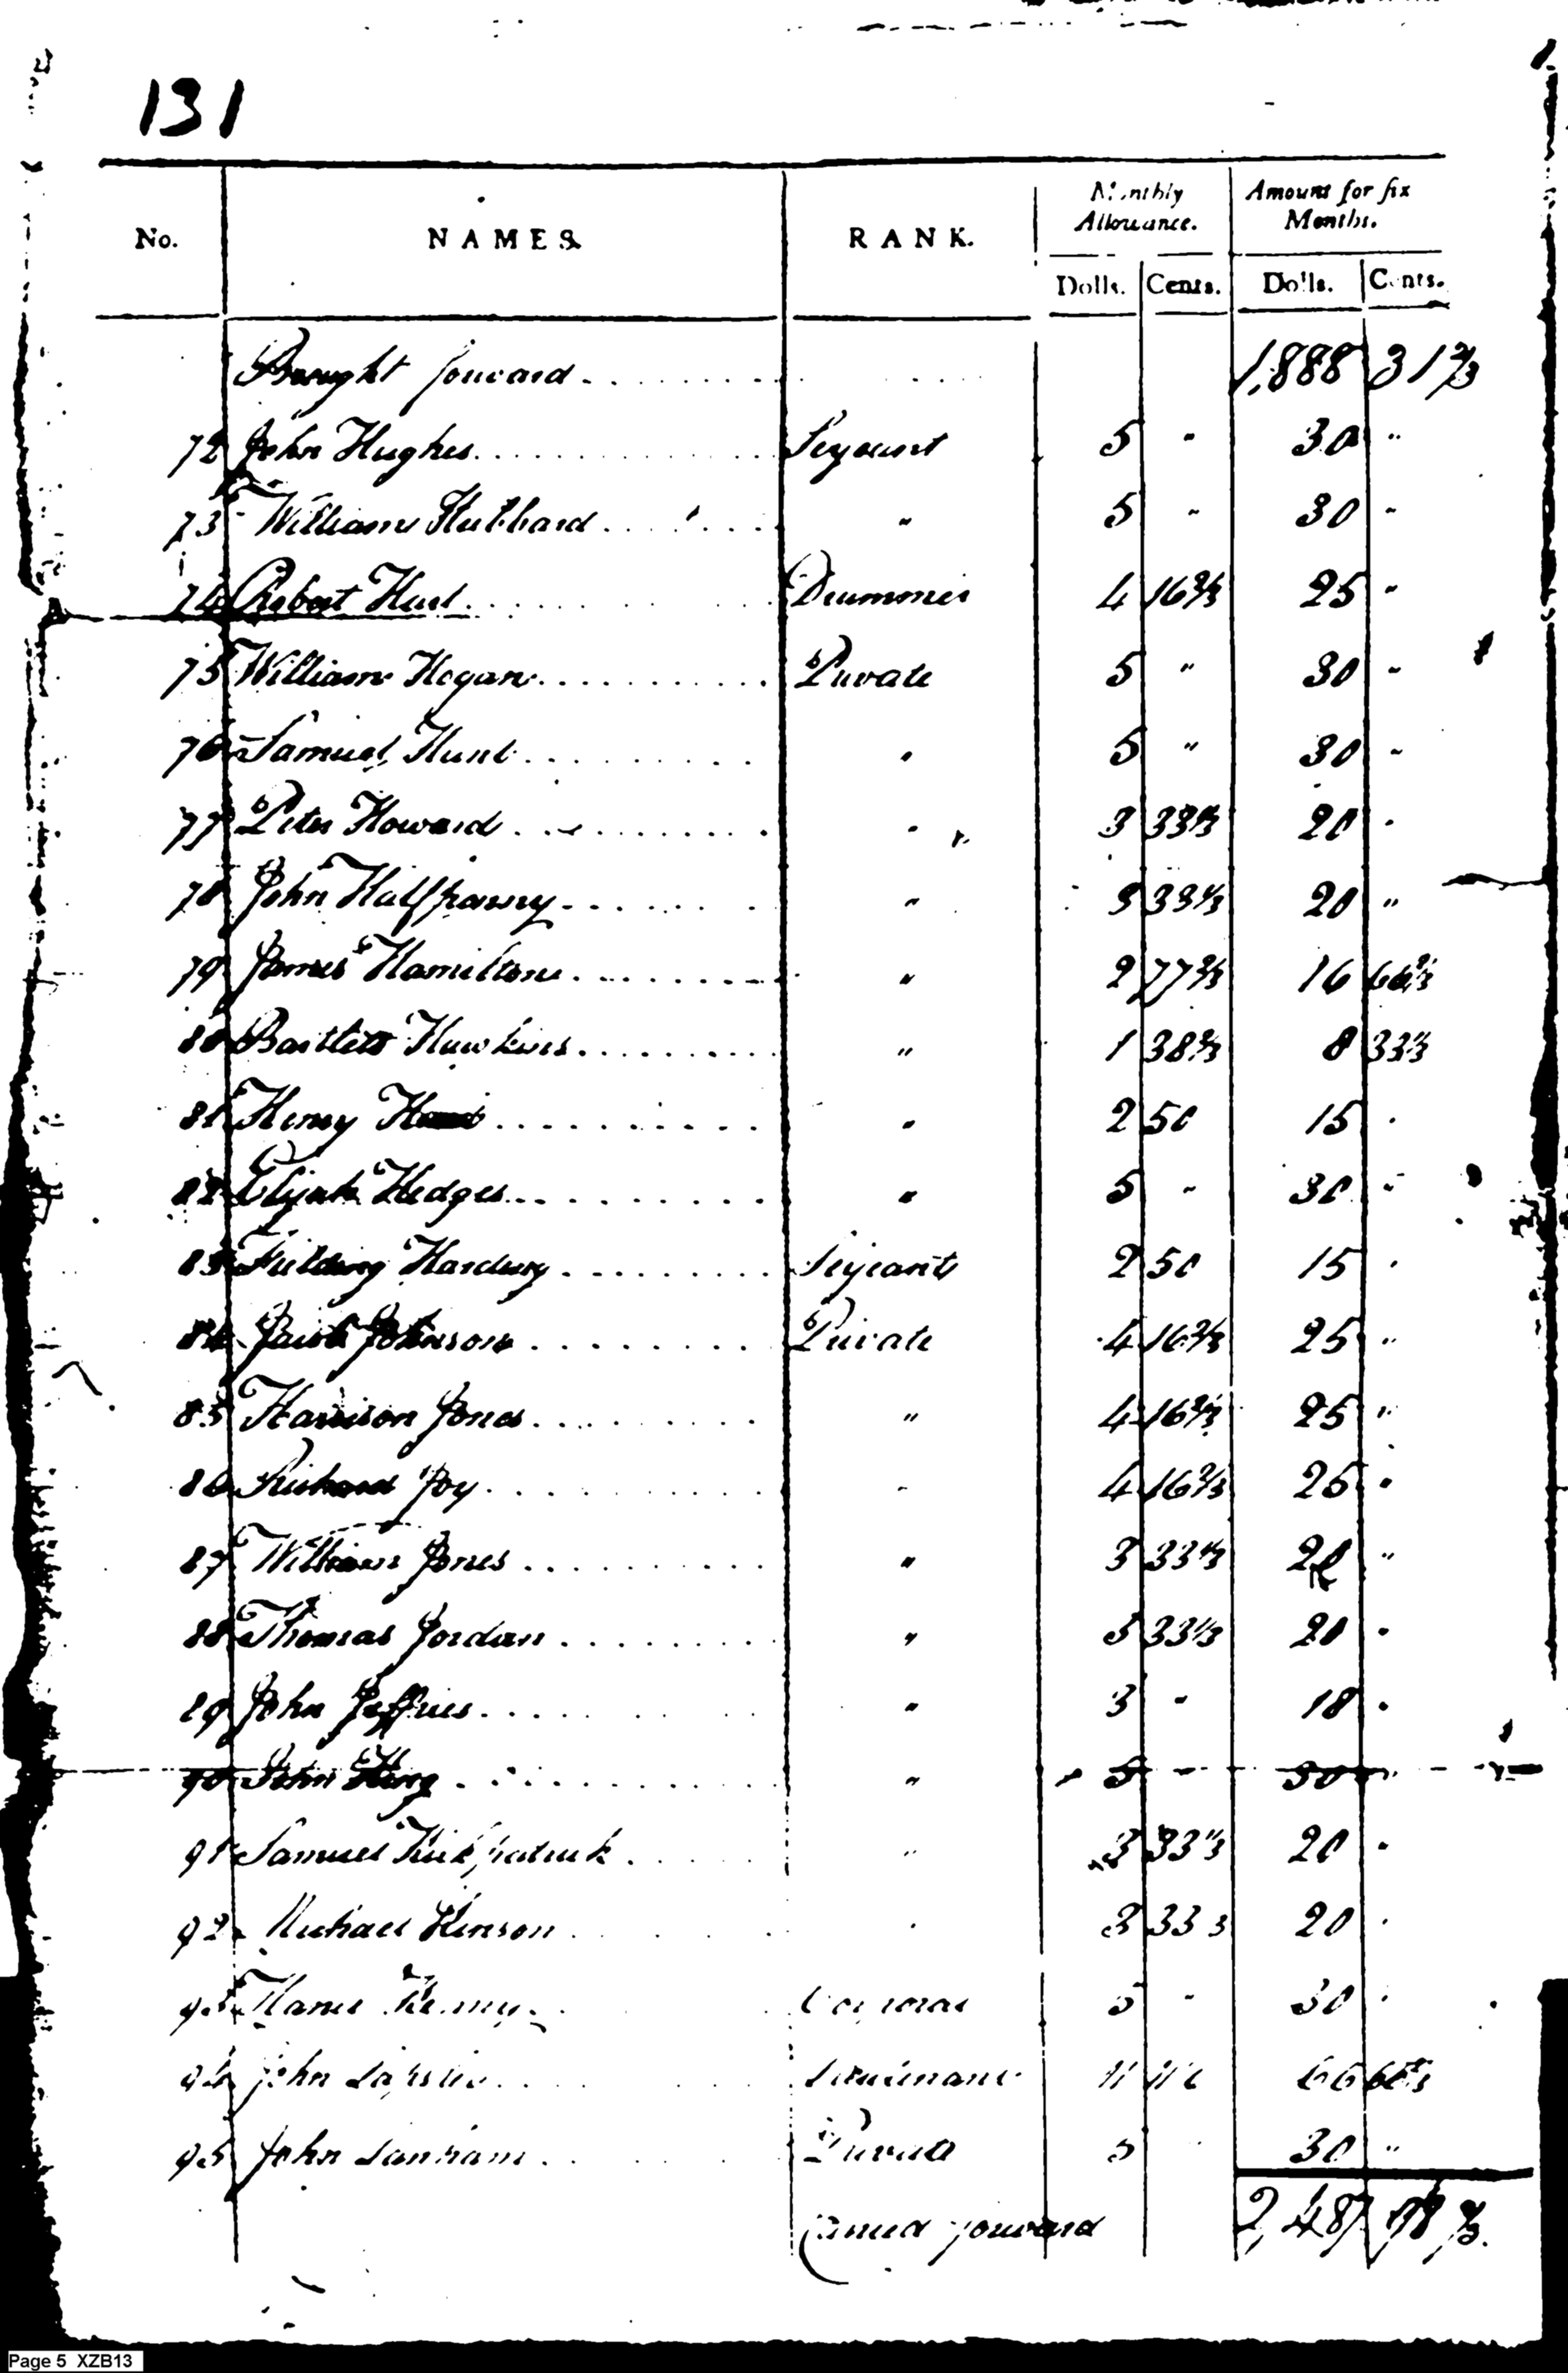 131
No. NAMES. RANK. Monthly Allowance. Amount for six Months.
Dolls. Cents. Dolls. Cents.
Brought forward 1,888 31 2/3
72 John Hughes Serjeant 5 " 30 "
73 William Hubbard " 5 " 30 "
74 Robert Drummer 4 16 2/3 25 "
75 William Hogan Private 5 " 30 "
76 Samuel Hunt " 5 " 30 "
77 Peter Howard " 3 33 1/3 20 "
78 John Halfpenny " 3 33 1/3 20 "
79 James Hamilton " 2 77 2/3 16 66 2/3
80 Bartlett Hawkins " 1 38 2/3 8 33 1/3
81 Henry " 2 50 15 "
82 Elijah Hedges " 5 " 30 "
83 Fielding Harding Serjeant 2 50 15 "
84 Jacob Johnson Private 4 16 2/3 25 "
85 Harrison Jones " 4 16 2/3 25 "
86 Richard Joy " 4 16 2/3 25 "
87 William Jones " 3 33 1/3 20 "
88 Thomas Jordan " 3 33 1/3 20 "
89 John Jeffries " 3 " 18 "
90 John King " 5 " 30 "
91 Samuel Kirkpatrick " 3 33 1/3 20 "
92 Michael Kinson " 3 33 1/3 20 "
93 Corporal 5 " 30 "
94 John Lieutenant 11 11 66 66 2/3
95 John Lanham Private 5 30 "
Carried forward 2,487 98 1/3
Page 5 XZB13